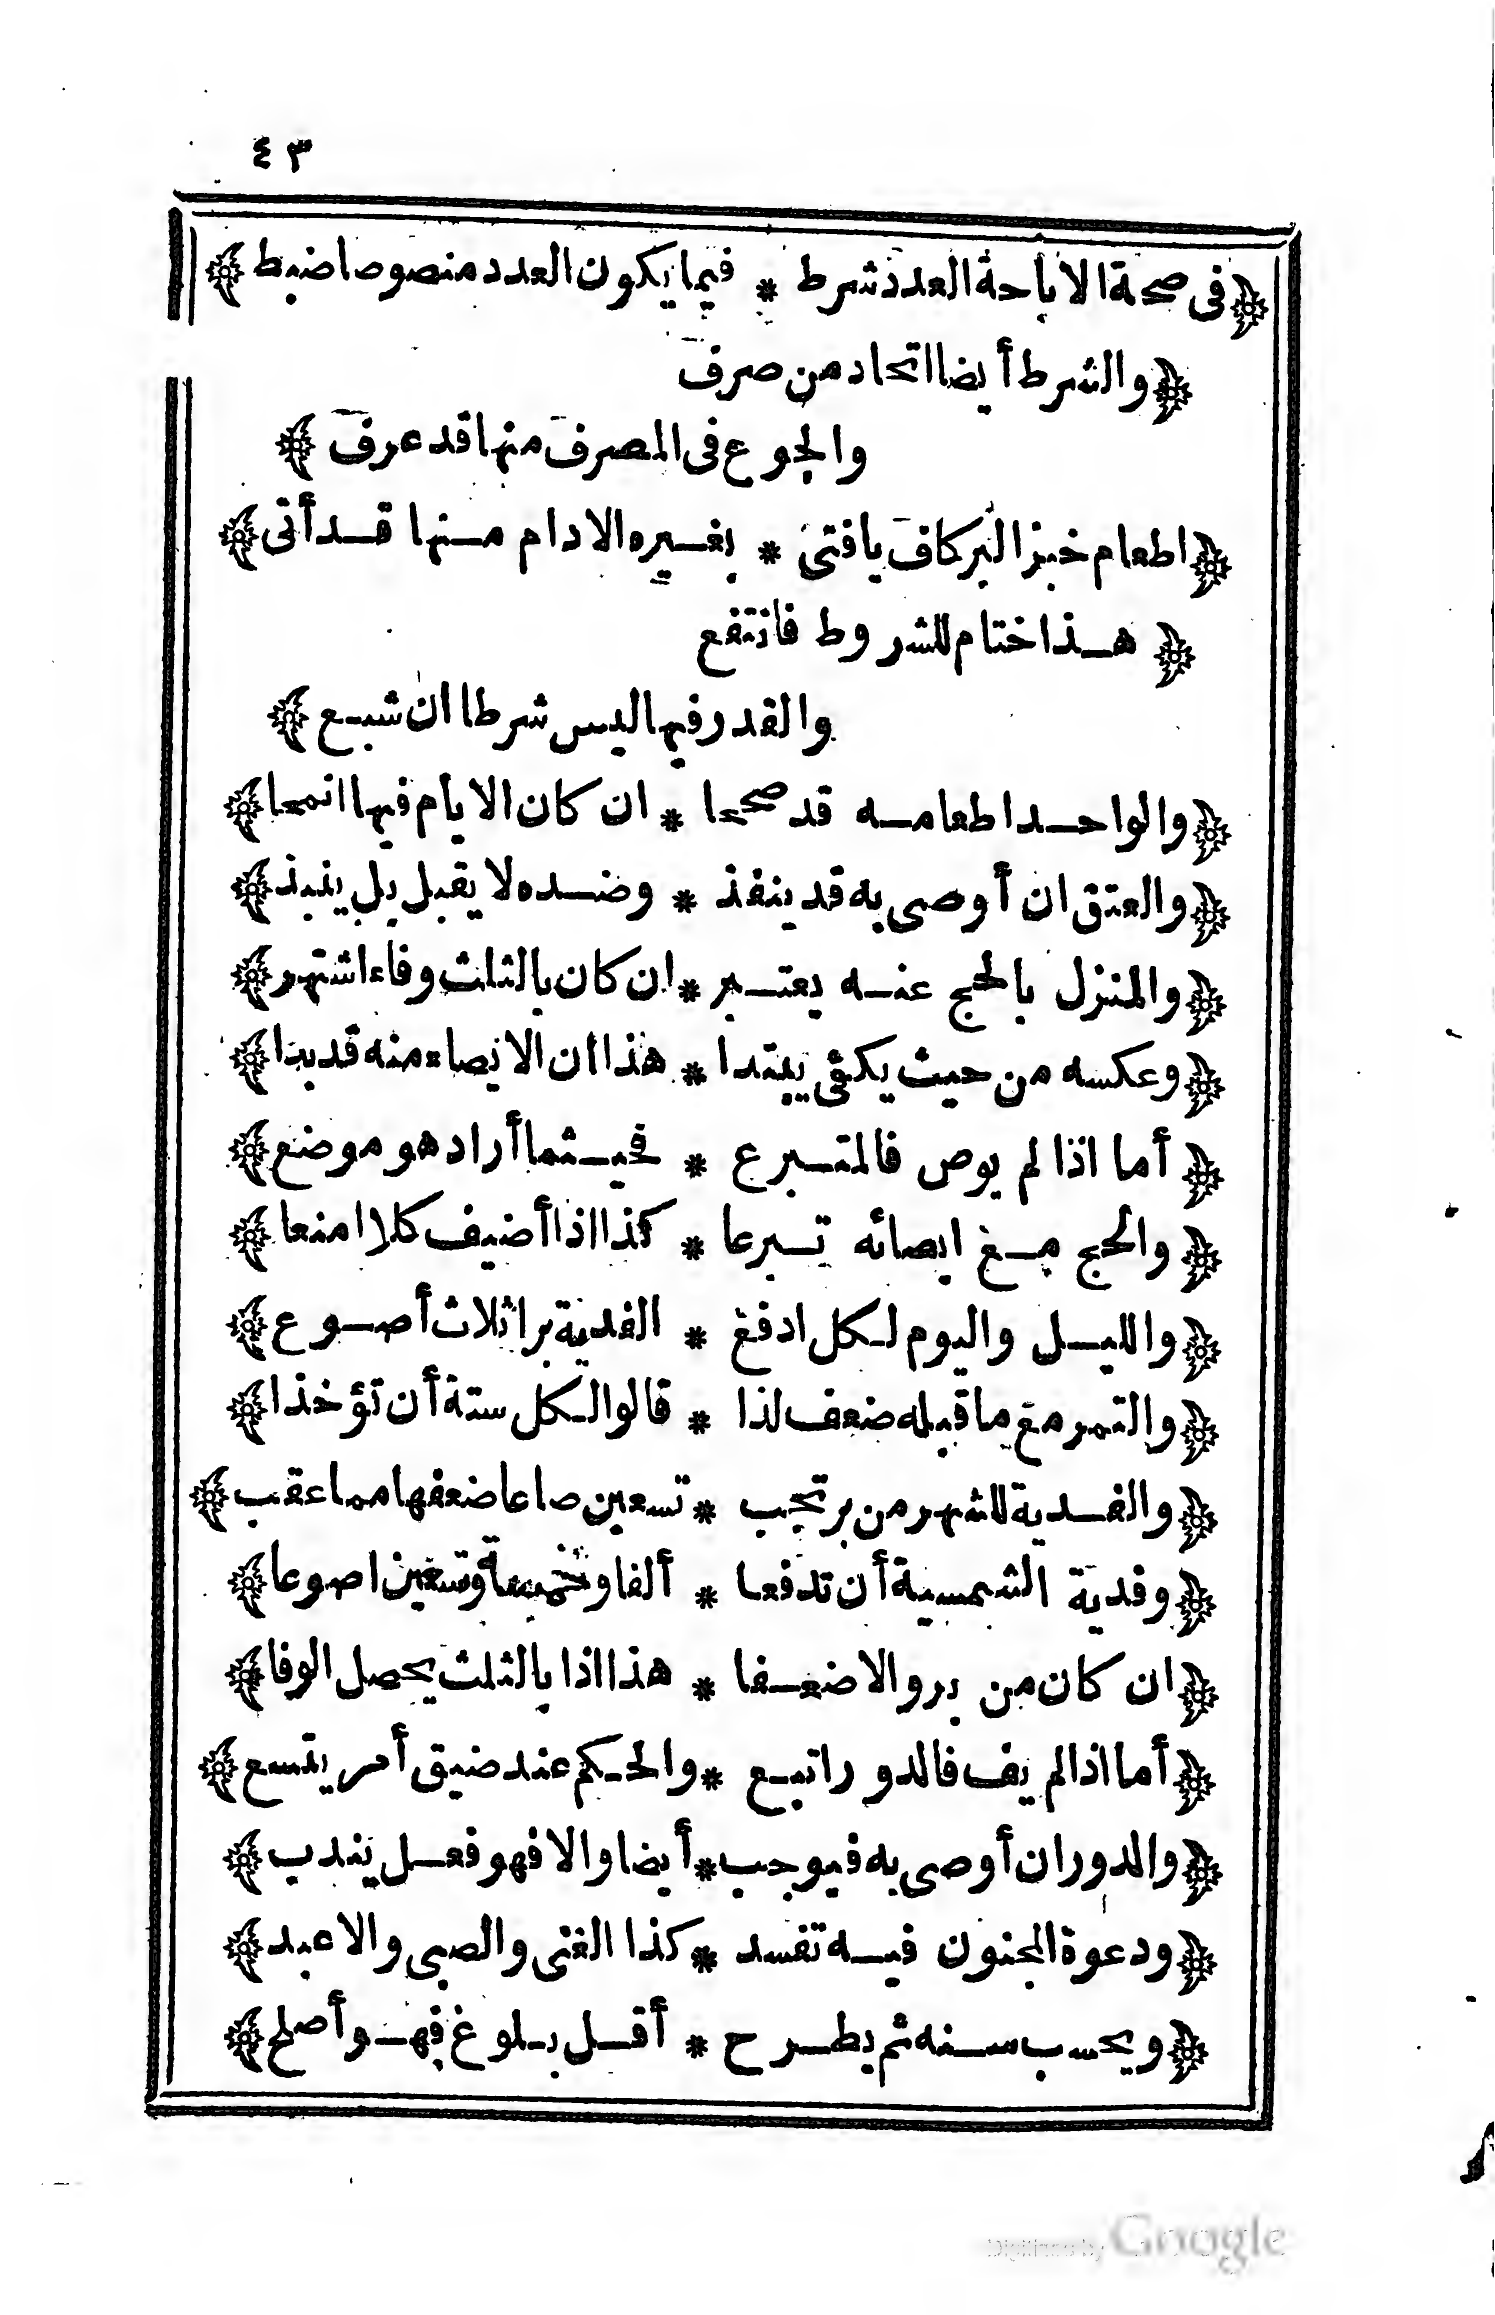 ٤٣
﴿في صحة الاباحة العدد شرط * فيما يكون العدد منصوصا ضبط﴾
﴿والشرط أيضا اتحاد من صرف
والجوع في المصرف منها قد عرف﴾
﴿اطعام خبز البر كاف يا فتى * بغيره الادام منها قد أتى﴾
﴿هذا ختام للشروط فانتفع
والقدر فيها ليس شرطا ان شبع﴾
﴿والواحد اطعامه قد صححا * ان كان الايام فيها انمحا﴾
﴿والعتق ان أوصى به قد ينفذ * وضده لا يقبل بل ينبذ﴾
﴿والمنزل بالحج عنه يعتبر * ان كان بالثلث وفاء اشتهر﴾
﴿وعكسه من حيث يكفي يبتدا * هذا ان الايصاء منه قد بدا﴾
﴿أما اذا لم يوص فالمتبرع * فحيثما أراد هو موضع﴾
﴿والحج مع ايصائه تبرعا * كذا اذا أضيف كلا امنعا﴾
﴿والليل واليوم لكل ادفع * الفدية برا ثلاث أصوع﴾
﴿والتمر مع ما قبله ضعف لذا * قالوا لكل ستة أن تؤخذا﴾
﴿والفدية للشهر من بر تجب * تسعين صاعا ضعفها مما عقب﴾
﴿وفدية الشمسية أن تدفعا * ألفا وخمسة وتسعين اصوعا﴾
﴿ان كان من بر والا ضعفا * هذا اذا بالثلث يحصل الوفا﴾
﴿أما اذا لم يف فالدور اتبع * والحكم عند ضيق أمر يتسع﴾
﴿والدوران أوصى به فيوجب * أيضا والا فهو فعل يندب﴾
﴿ودعوة المجنون فيه تفسد * كذا الغنى والصبى والاعبد﴾
﴿ويحسب سنه ثم يطرح * أقل بلوغ فهو أصلح﴾
Digitized by Google